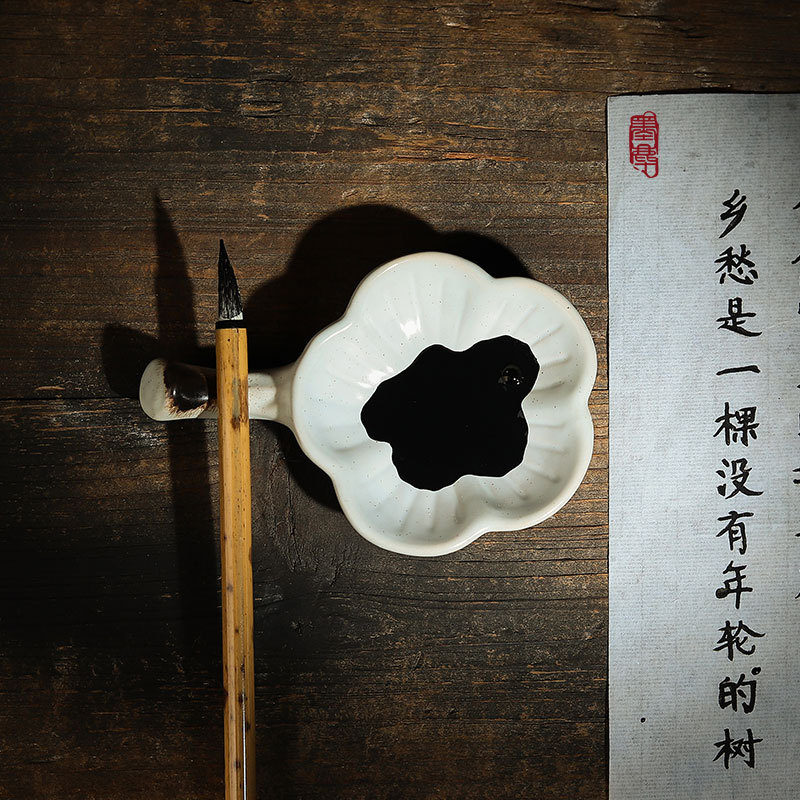 乡愁是一棵没有年轮的树